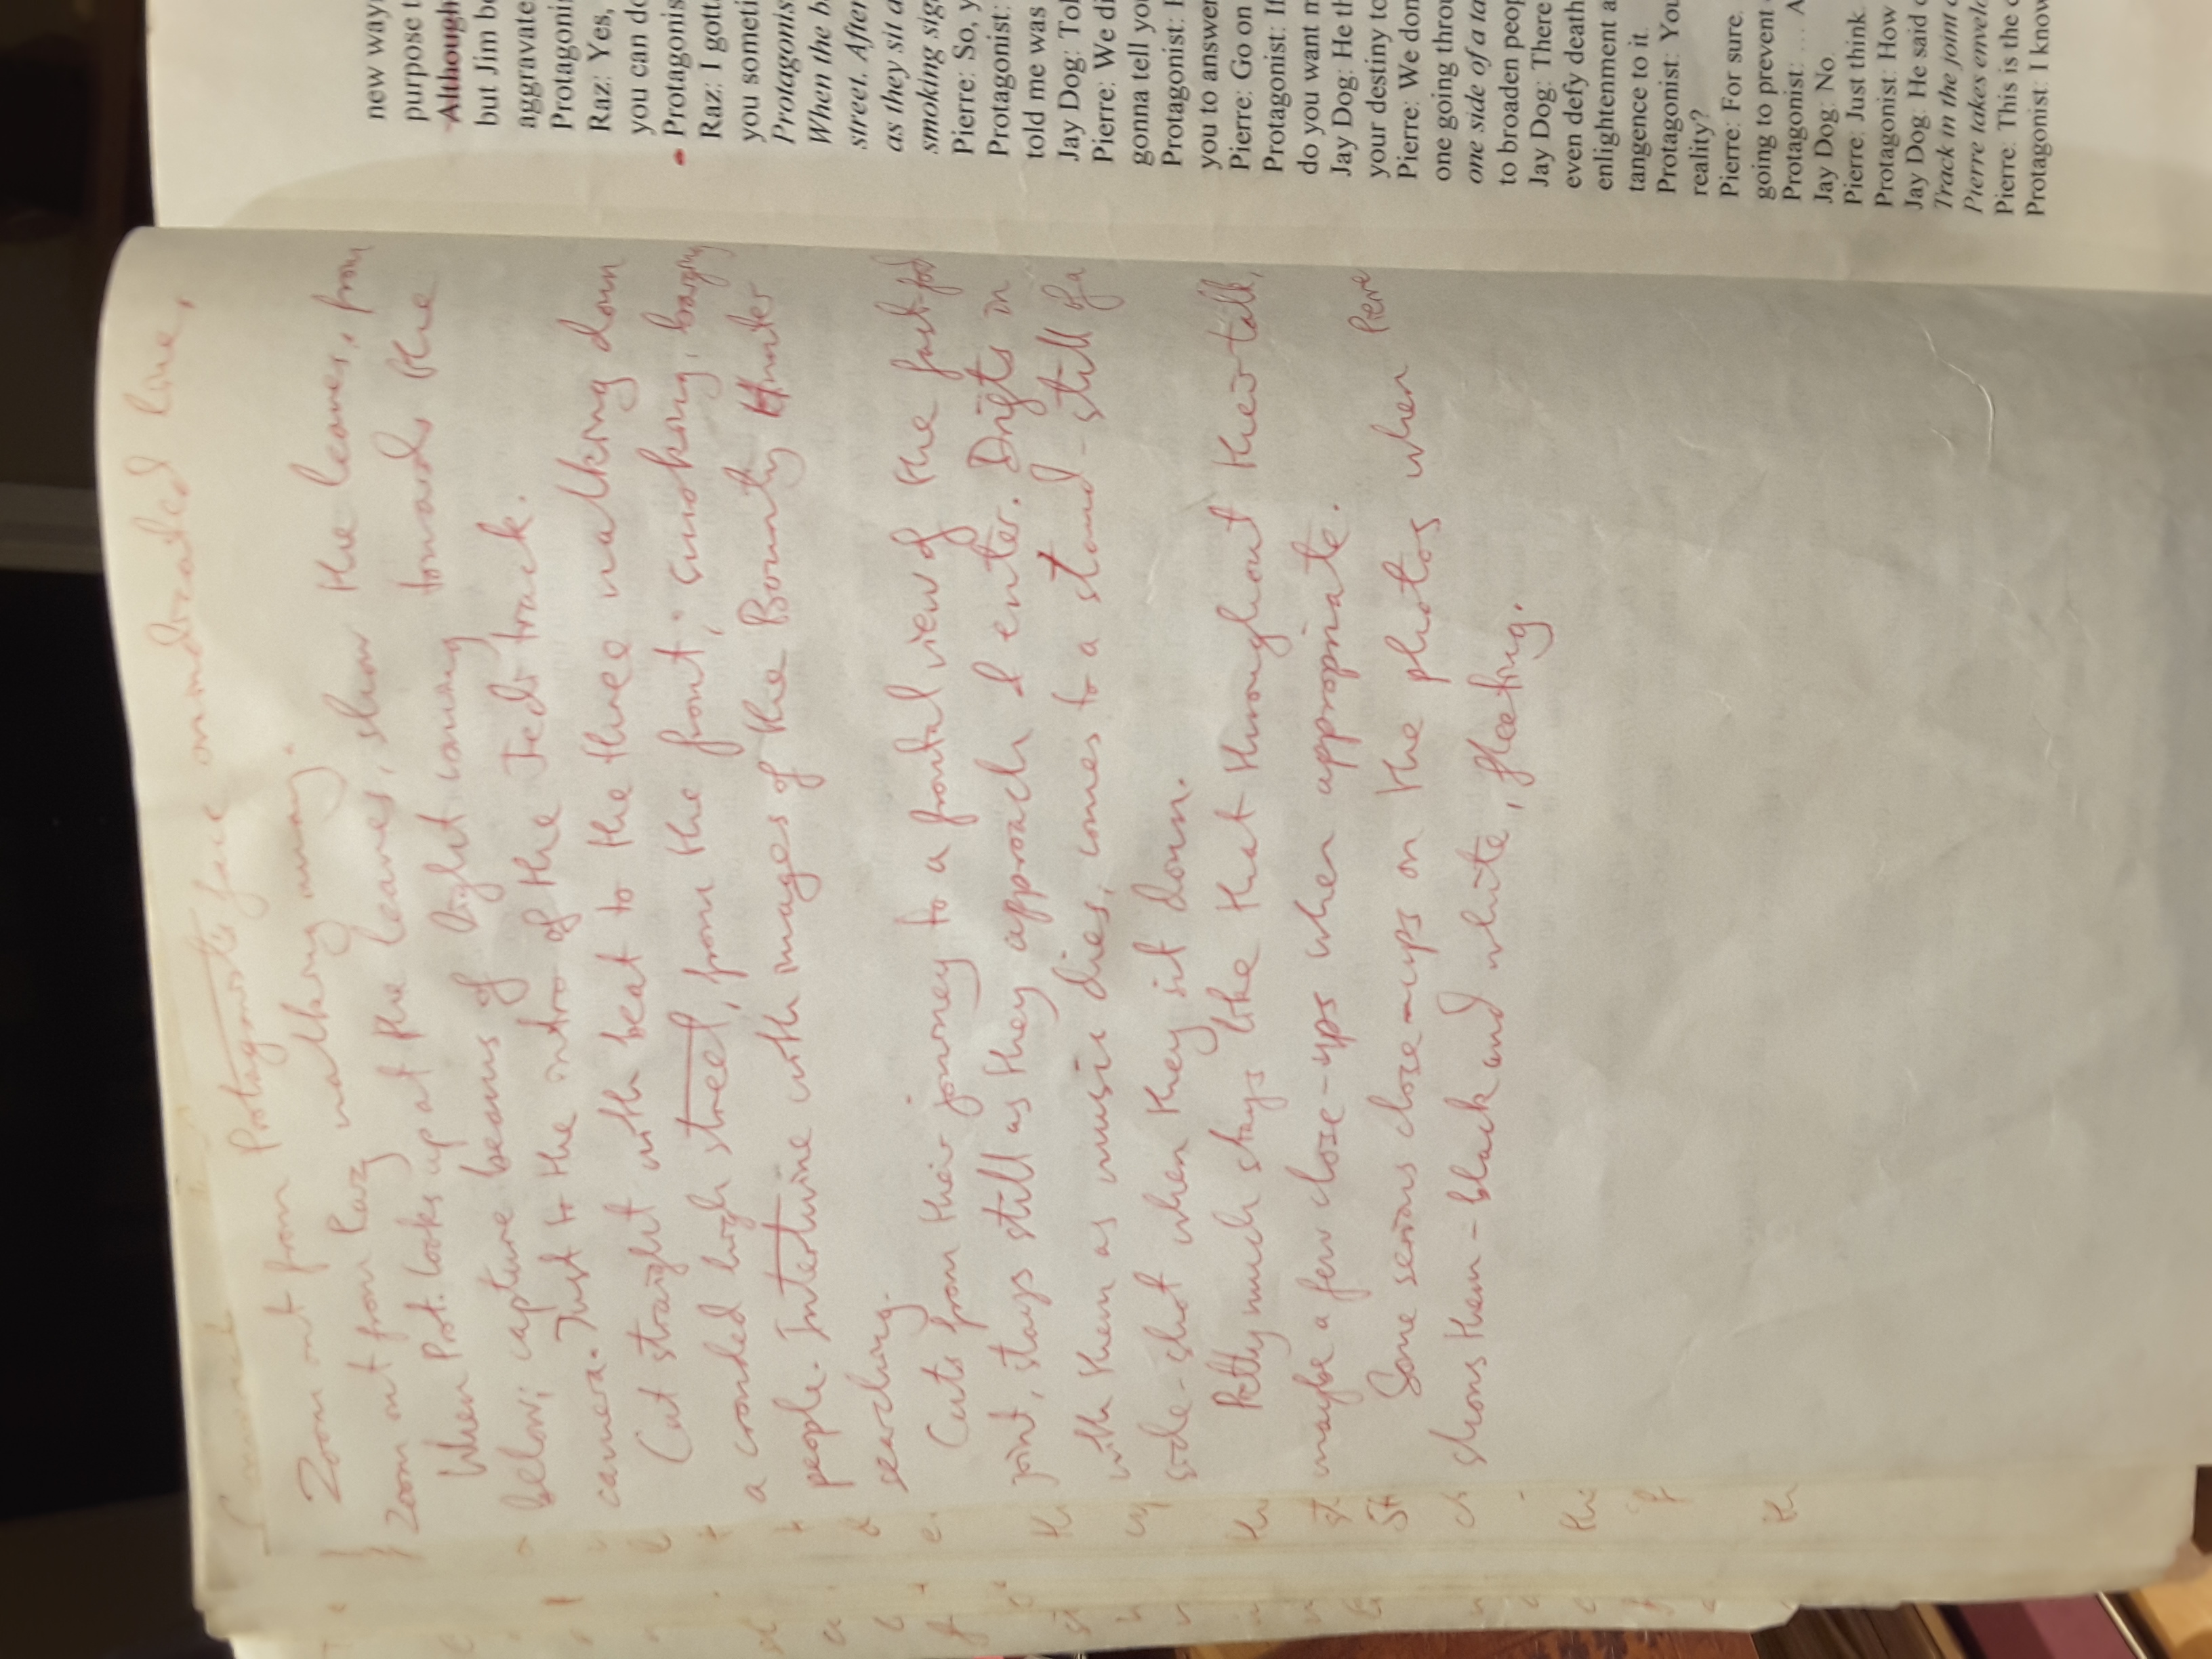 Zoom out from Protagonist's face on indicated line,
Zoom out from Raz walking away.
When Prot. looks up at the leaves, show the leaves, from
below; capture beams of light coming towards the
camera. Just to the intro of the Jedi track.
Cut straight with beat to the three walking down
a crowded high street, from the front; smoking, barging
people. Intertwine with images of the Bounty Hunter
searching.
Cuts from their journey to a frontal view of the fast-food
joint, stays still as they approach & enter. Drifts in
with them as music dies, comes to a stand-still of a
side-shot when they sit down.
Pretty much stays like that throughout their talk,
maybe a few close-ups when appropriate.
Some serious close-ups on the photos when Pierre
shows them - black and white, fleeting.
new way
purpose t
Although
but Jim b
aggravate
Protagonis
Raz: Yes,
you can do
Protagonis
Raz: I gott
you someti
Protagonis
When the b
street. After
as they sit a
smoking sig
Pierre: So, y
Protagonist:
told me was
Jay Dog: Tol
Pierre: We di
gonna tell yo
Protagonist: I
you to answer
Pierre: Go on
Protagonist: If
do you want m
Jay Dog: He th
your destiny to
Pierre: We don
one going throu
one side of a ta
to broaden peop
Jay Dog: There
even defy death
enlightenment a
tangence to it.
Protagonist: You
reality?
Pierre: For sure.
going to prevent
Protagonist: ... A
Jay Dog: No.
Pierre: Just think.
Protagonist: How
Jay Dog: He said
Track in the joint
Pierre takes envel
Pierre: This is the
Protagonist: I know